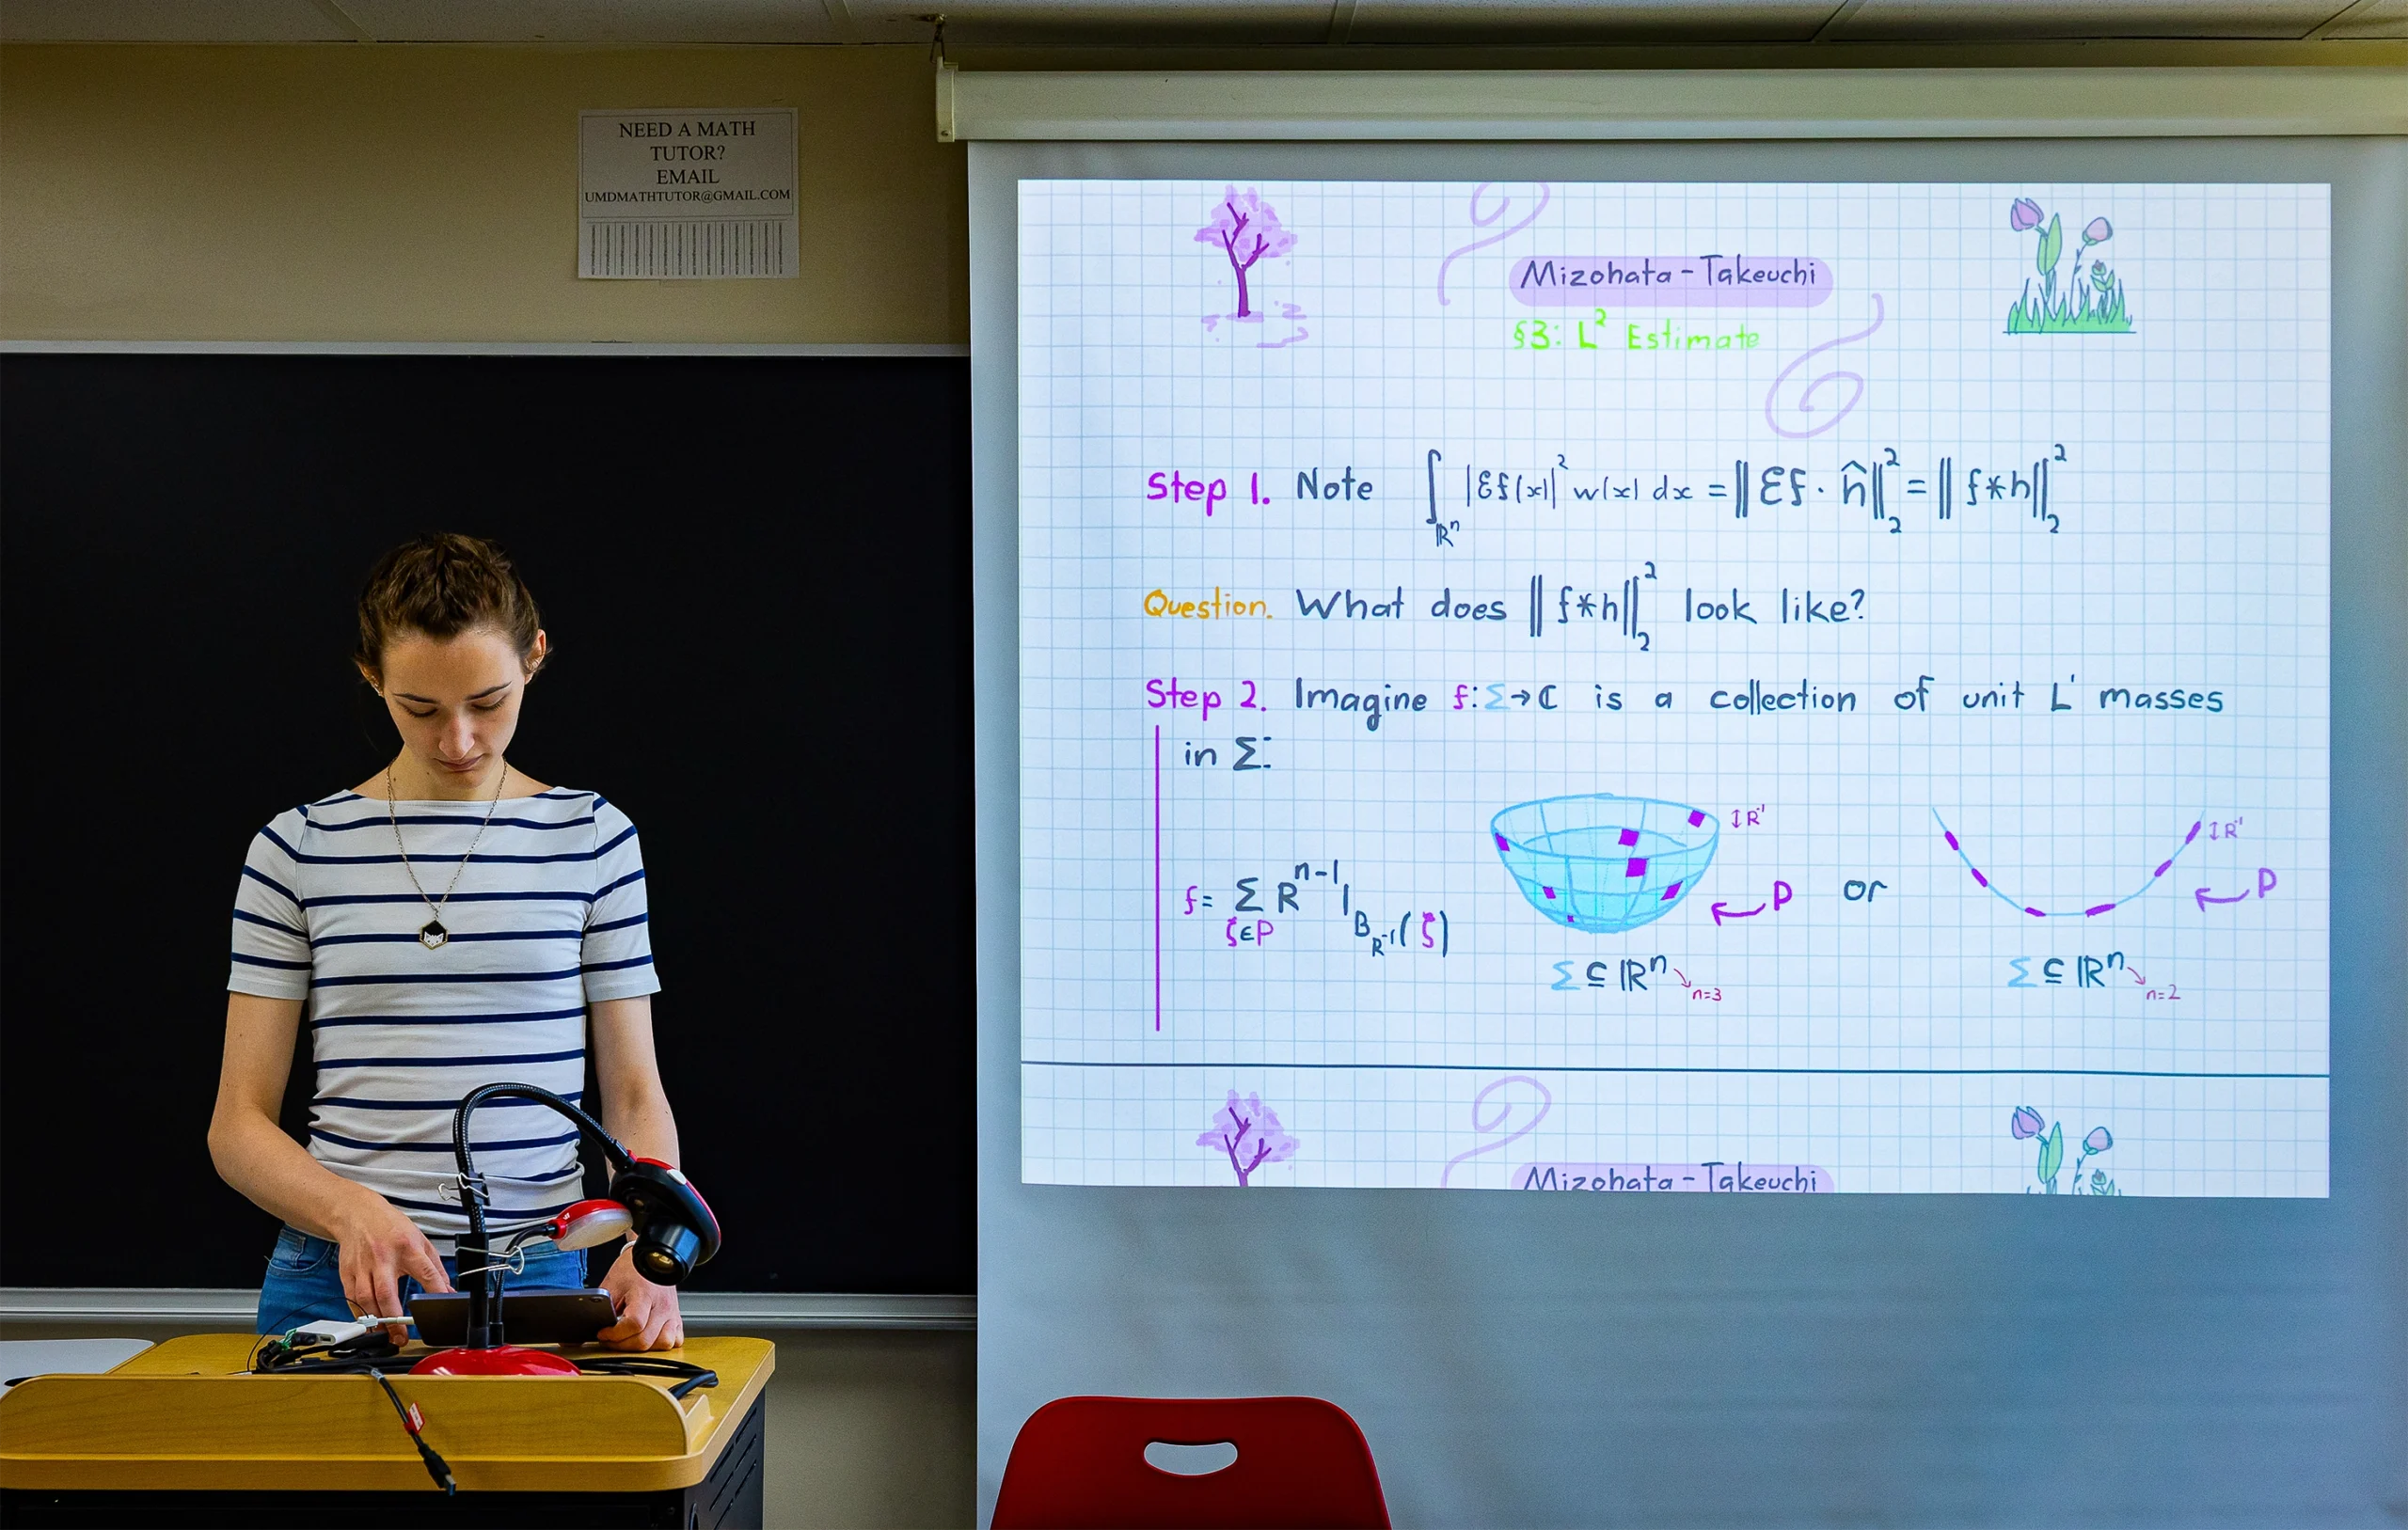 NEED A MATH
TUTOR?
EMAIL
UMDMATHTUTOR@GMAIL.COM
Mizohata - Takeuchi
§3: L² Estimate
Step 1. Note ∫_{ℝⁿ} |Ɛf(x)|² w(x) dx = ‖Ɛf · ĥ‖₂² = ‖f*h‖₂²
Question. What does ‖f*h‖₂² look like?
Step 2. Imagine f: Σ → ℂ is a collection of unit L¹ masses
in Σ:
↕R⁻¹
↕R⁻¹
f = Σ_{ζ∈P} R^{n-1} 1_{B_{R⁻¹}(ζ)}
P
or
P
Σ ⊆ ℝⁿ n=3
Σ ⊆ ℝⁿ n=2
Mizohata - Takeuchi